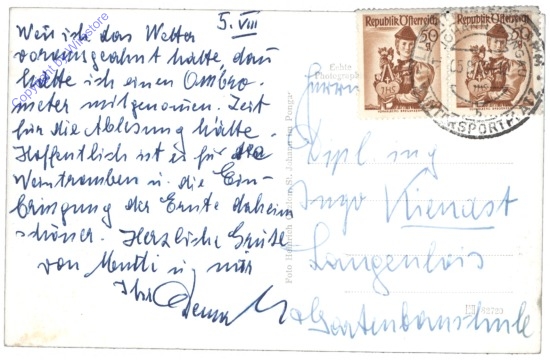 5. VIII
Wenn ich das Wetter
vorausgeahnt hätte, dann
hätte ich einen Ombro-
meter mitgenommen. Zeit
für die Ablesung hätte.
Hoffentlich ist es für die
Weintrauben u. die Ein-
bringung der Ernte daheim
schöner. Herzliche Grüße
von Mendli u. mir
Ihr
Republik Österreich
50
g
Republik Österreich
50
WINTERSPORTPLATZ
Echte
Photographie
Herrn
Dipl. ing
Ingo Kienast
Langenlois
Gartenbauschule
Foto Heinrich St. Johann im Pongau
02720
Copyright by WinStore